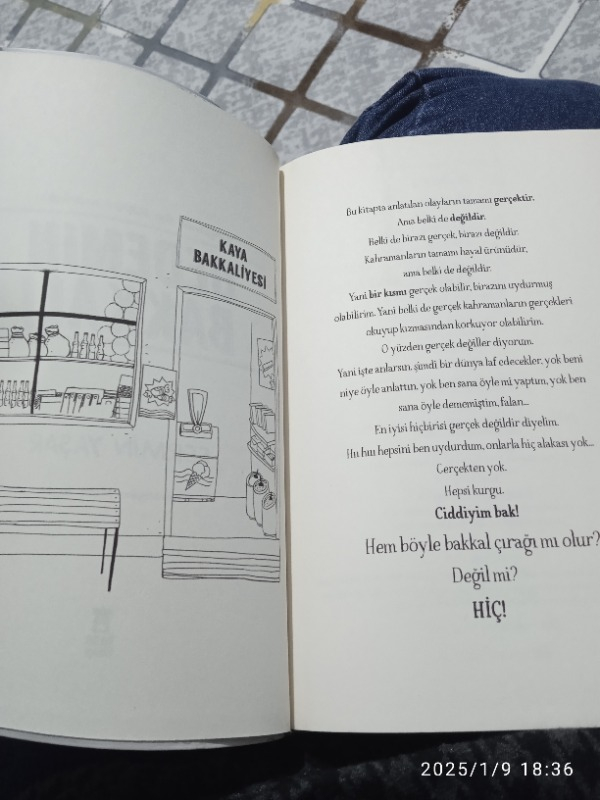 KAYA
BAKKALİYESİ
Bu kitapta anlatılan olayların tamamı gerçektir.
Ama belki de değildir.
Belki de birazı gerçek, birazı değildir.
Kahramanların tamamı hayal ürünüdür,
ama belki de değildir.
Yani bir kısmı gerçek olabilir, birazını uydurmuş
olabilirim. Yani belki de gerçek kahramanların gerçekleri
okuyup kızmasından korkuyor olabilirim.
O yüzden gerçek değiller diyorum.
Yani işte anlarsın, şimdi bir dünya laf edecekler, yok beni
niye öyle anlattın, yok ben sana öyle mi yaptım, yok ben
sana öyle dememiştim, falan...
En iyisi hiçbirisi gerçek değildir diyelim.
Hıı hıı hepsini ben uydurdum, onlarla hiç alakası yok...
Gerçekten yok.
Hepsi kurgu.
Ciddiyim bak!
Hem böyle bakkal çırağı mı olur?
Değil mi?
HİÇ!
2025/1/9 18:36